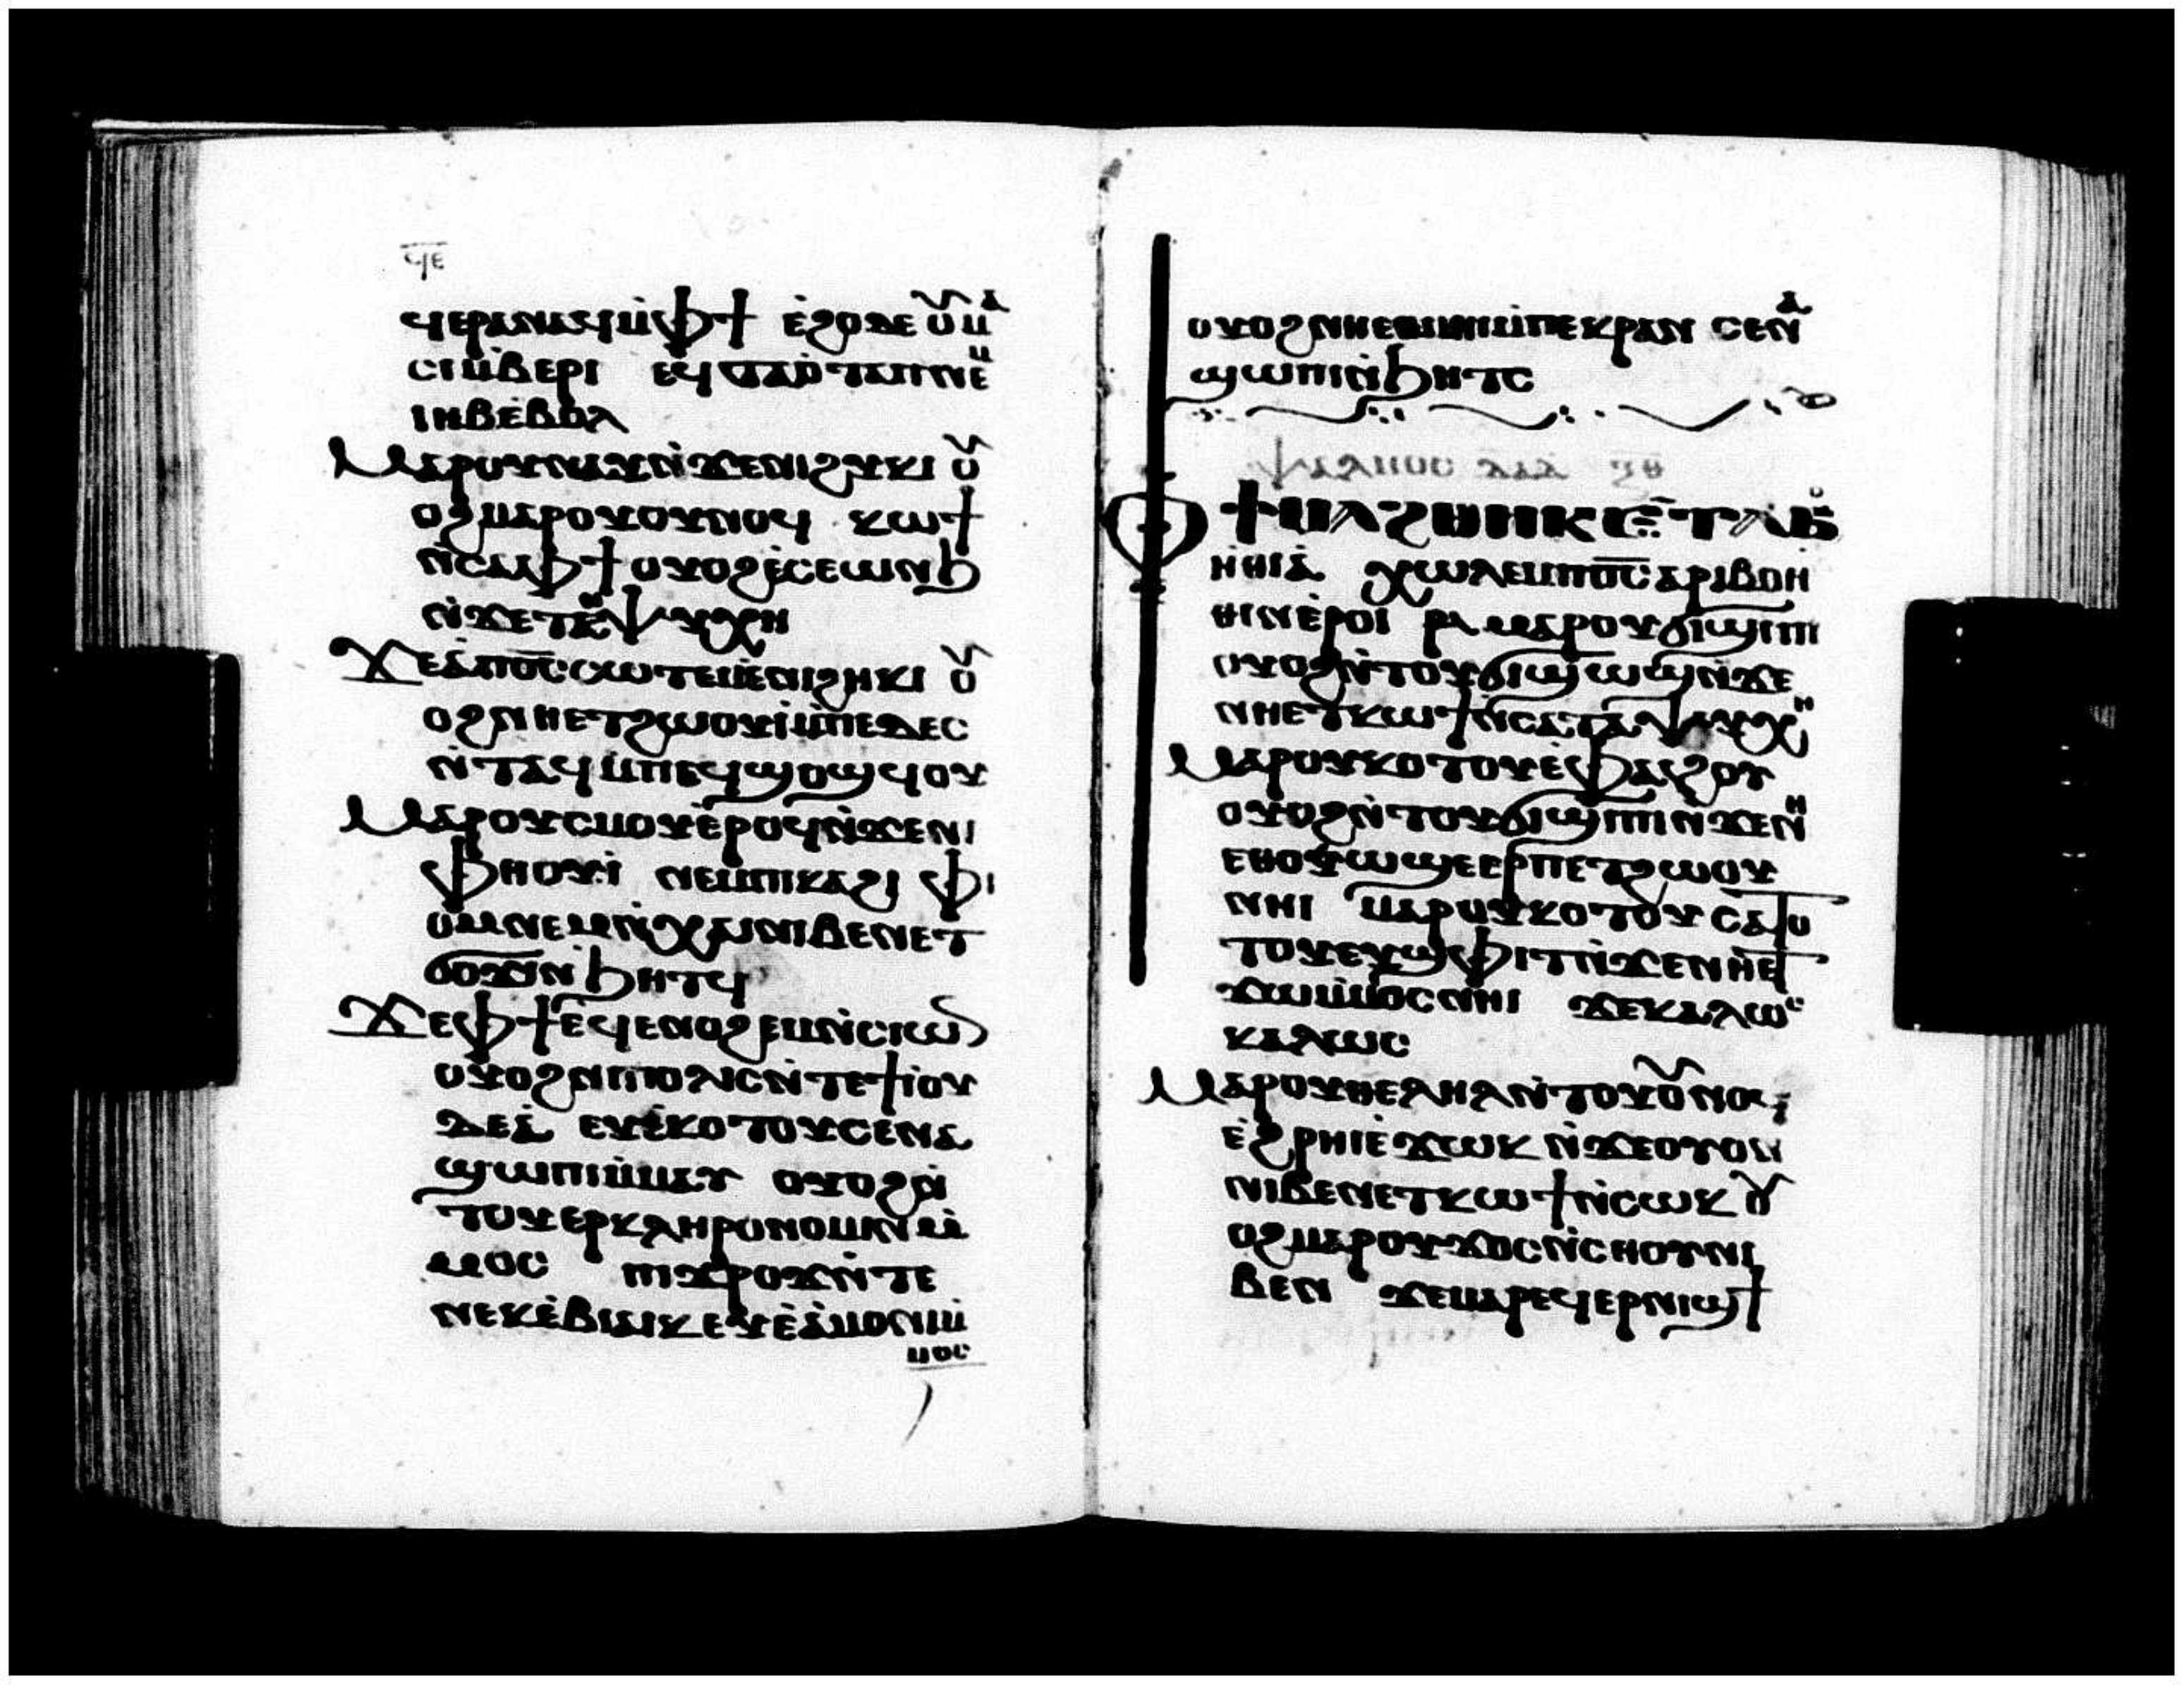 ϥⲉ
ϥⲉⲣⲁⲛⲁϥⲙ̇ⲫϯ ⲉ̇ϩⲟⲧⲉⲟⲩⲙⲁ
ⲥⲓⲙ̇ⲃⲉⲣⲓ ⲉϥϭⲁⲡ̇ⲧⲁⲡⲛⲉⲙ
ⲓⲏⲃⲉ̇ⲃⲟⲗ
Ⲙⲁⲣⲟⲩⲛⲁⲩⲛ̇ϫⲉⲛⲓϩⲏⲕⲓ ⲟⲩ
ⲟϩⲙⲁⲣⲟⲩⲟⲩⲛⲟϥ ⲕⲱϯ
ⲛ̇ⲥⲁⲫϯ ⲟⲩⲟϩⲉ̇ⲥⲉⲱⲛϧ
ⲛ̇ϫⲉⲧⲉⲛⲯⲩⲭⲏ
Ϫⲉⲁ̇ⲡⲟ̅ⲥ̅ⲥⲱⲧⲉⲙⲉ̇ⲛⲓϩⲏⲕⲓ ⲟⲩ
ⲟϩⲛⲏⲉⲧϩⲱⲟⲩⲓ̇ⲙ̇ⲡⲉⲇⲉⲥ
ⲛ̇ⲧⲁϥ ⲙ̇ⲡⲉϥϣⲟϣϥⲟⲩ
Ⲙⲁⲣⲟⲩⲥⲙⲟⲩⲉ̇ⲣⲟϥⲛ̇ϫⲉⲛⲓ
ⲫⲏⲟⲩⲓ̇ ⲛⲉⲙⲡⲓⲕⲁϩⲓ ⲫⲓ
ⲟⲙⲛⲉⲙⲛ̇ⲭⲁⲓⲛⲓⲃⲉⲛⲉⲧ
ϭⲟϫⲓⲛ̇ϧⲏⲧϥ
Ϫⲉⲫϯⲉϥⲉⲛⲟϩⲉⲙⲛ̇ⲥⲓⲱⲛ
ⲟⲩⲟϩⲛⲓⲡⲟⲗⲓⲥⲛ̇ⲧⲉϯⲓⲟⲩ
ⲇⲉⲁ̇ ⲉⲩⲉ̇ⲕⲟⲧⲟⲩⲥⲉⲛⲁ
ϣⲱⲡⲓⲙ̇ⲙⲁⲩ ⲟⲩⲟϩⲛ̇
ⲧⲟⲩⲉⲣⲕⲗⲏⲣⲟⲛⲟⲙⲓⲛⲙ̇
ⲙⲟⲥ ⲡⲓϫⲣⲟϫⲛ̇ⲧⲉ
ⲛⲉⲕⲉ̇ⲃⲓⲁⲓⲕⲉⲩⲉ̇ⲁ̇ⲙⲟⲛⲓⲙ̇
ⲙⲟⲥ
ⲟⲩⲟϩⲛⲏⲉⲑⲙⲉⲓⲙ̇ⲡⲉⲕⲣⲁⲛ ⲥⲉⲛⲁ
ϣⲱⲡⲓⲛ̇ϧⲏⲧⲥ
ⲯⲁⲗⲙⲟⲥ ⲇⲁⲇ ⲝⲑ
Ⲫϯⲙⲁϩⲑⲏⲕⲉ̇ⲧⲁⲃⲟ
ⲏ̇ⲑⲓⲁ̇ ⲭⲱⲗⲉⲙⲡⲟ̅ⲥ̅ⲁⲣⲓⲃⲟⲏ
ⲑⲓⲛⲉ̇ⲣⲟⲓ ⲙⲁⲣⲟⲩϭⲓϣⲓⲡⲓ
ⲟⲩⲟϩⲛ̇ⲧⲟⲩϭⲓϣⲱϣⲛ̇ϫⲉ
ⲛⲏⲉⲧⲕⲱϯⲛ̇ⲥⲁⲧⲁⲯⲩⲭⲏ
Ⲙⲁⲣⲟⲩⲕⲟⲧⲟⲩⲉ̇ⲫⲁϩⲟⲩ
ⲟⲩⲟϩⲛ̇ⲧⲟⲩϭⲓϣⲓⲡⲓⲛ̇ϫⲉⲛⲏ
ⲉⲑⲟⲩⲱϣⲉⲉⲣⲡⲉⲧϩⲱⲟⲩ
ⲛⲏⲓ ⲙⲁⲣⲟⲩⲕⲟⲧⲟⲩⲥⲁⲧⲟ
ⲧⲟⲩⲉⲩϣⲫⲓⲧⲛ̇ϫⲉⲛⲏⲉⲧ
ϫⲱⲙ̇ⲙⲟⲥⲛⲏⲓ ϫⲉⲕⲁⲗⲱⲥ
ⲕⲁⲗⲱⲥ
Ⲙⲁⲣⲟⲩⲑⲉⲗⲏⲗⲛ̇ⲧⲟⲩⲟⲩⲛⲟϥ
ⲉ̇ϩⲣⲏⲓⲉ̇ϫⲱⲕ ⲛ̇ϫⲉⲟⲩⲟⲛ
ⲛⲓⲃⲉⲛⲉⲧⲕⲱϯⲛ̇ⲥⲱⲕ ⲟⲩ
ⲟϩⲙⲁⲣⲟⲩϫⲟⲥⲛ̇ⲥⲏⲟⲩⲛⲓ
ⲃⲉⲛ ϫⲉⲙⲁⲣⲉϥⲉⲣⲛⲓϣϯ